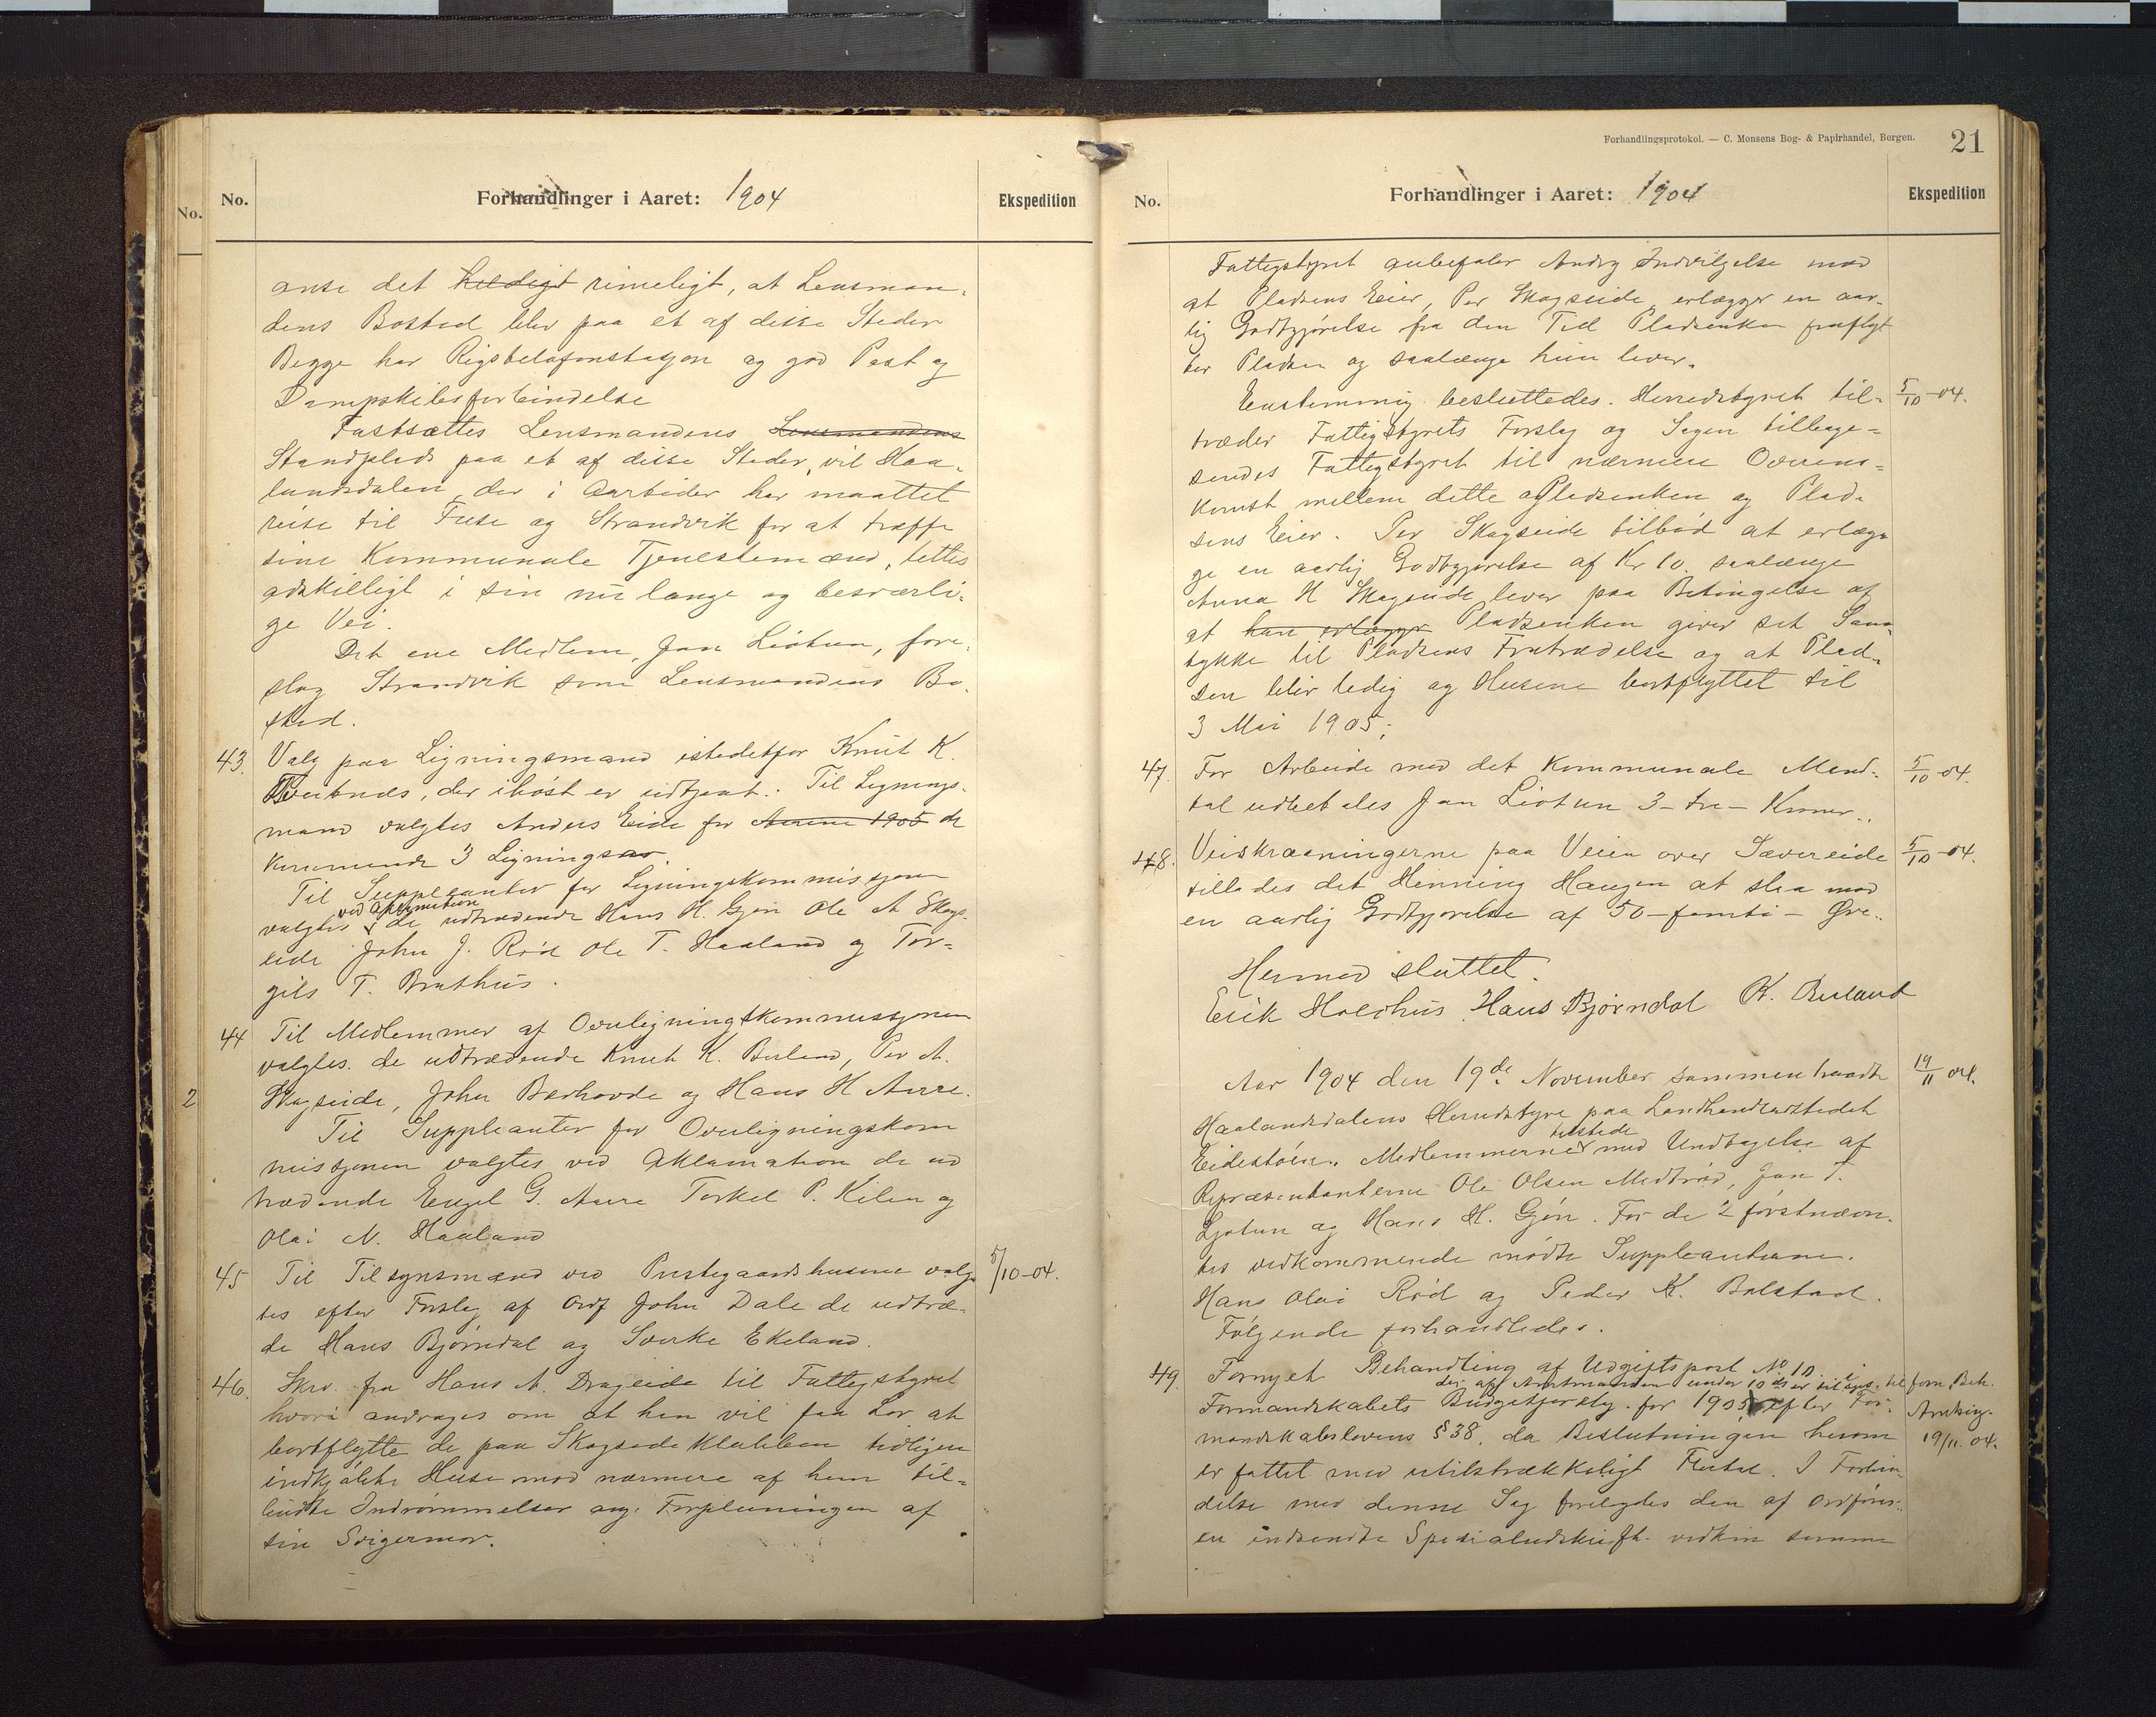 No.
No.
Forhandlinger i Aaret: 1904
Ekspedition
anse det heldigt rimeligt, at Lensman-
dens Bosted blev paa et af disse Steder
Begge har Rigstelefonstasjon og god Post og
Dampskibsforbindelse
Fastsættes Lensmandens Lensmandens
Standplads paa et af disse Steder, vil Haa-
landsdalen, der i Aartider har maattet
reise til Fuse og Strandvik for at træffe
sine Kommunale Tjenestemænd, lettes
adskilligt i sin nu lange og besværli-
ge Vei.
Det ene Medlem, Jan Liøtun, fore-
slog Strandvik som Lensmandens Bo-
sted.
43. Valg paa Ligningsmand istedetfor Knut K.
Tveitnes, der ihøst er udtjent. Til Lignings-
mand valgtes Anders Eide for Aarene 1905 de
kommende 3 Ligningsaar.
Til Suppleanter for Ligningskommissjonen
ved Aklamation
valgtes de udtrædende Hans H. Gjøn Ole A Skogs-
eide John J. Rød Ole T. Haaland og Tor-
gils T. Brathus.
44 Til Medlemmer af Overligningskommissjonen
valgtes de udtrædende Knut K. Berland, Per A.
2
Skogseide, John Berhovde og Hans H Aure.
Til Suppleanter for Overligningskom
missjonen valgtes ved Aklamation de ud
trædende Engel G. Aure Torkel P. Kilen og
Olai N. Haaland
45 Til Tilsynsmænd ved Prestegaardshusene valg- 5/10-04.
tes efter Forslag af Ordf John Dale de udtræ-
de Hans Bjørndal og Sverke Ekeland.
46. Skr. fra Hans A. Drageide til Fattigstyret
hvori andrages om at han vil faa Lov at
bortflytte de paa Skogseideklubben tidligere
indkjøbte Huse mod nærmere af ham til-
budte Indrømmelser ang. Forpleiningen af
sin Svigermor.
Forhandlingsprotokol. — C. Monsens Bog- & Papirhandel, Bergen.
21
No.
Forhandlinger i Aaret: 1904
Ekspedition
Fattigstyret anbefaler Andrg Indvilgelse mod
at Pladsens Eier, Per Skogseide, erlægger en aar-
lig Godtgjørelse fra den Tid Pladsenken fraflyt
ter Pladsen og saalænge hun lever.
Enstemmig besluttedes. Herredstyret til- 5/10-04.
træder Fattigstyrets Forslag og Sagen tilbage-
sendes Fattigstyret til nærmere Overens-
komst mellem dette og Pladsenken og Plad-
sens Eier. Per Skogseide tilbød at erlæg-
ge en aarlig Godtgjørelse af Kr 10. saalænge
Anna H Skogseide lever paa Betingelse af
at han erlægger Pladsenken giver sit Sam-
tykke til Pladsens Fratrædelse og at Plad-
sen blir ledig og Husene bortflyttet til
3 Mai 1905.
47. For Arbeide med det Kommunale Mand- 5/10-04.
tal udbetales Jan Liøtun 3-tre- Kroner.
48. Veiskraaningerne paa Veien over Sævereide 5/10-04.
tillades det Henning Haugen at slaa mod
en aarlig Godtgjørelse af 50-femti- Øre.
Hermed sluttet.
Erik Holdhus Hans Bjørndal K. Berland
Aar 1904 den 19de November sammentraadte 19/11 04.
Haalandsdalens Herredstyre paa Landhandlerstedet
tilstede
Eidestøen. Medlemmerne med Undtagelse af
Repræsentanterne Ole Olsen Medtrød, Jan T.
Ljotun og Hans H. Gjøn. For de 2 førstnævn-
tes vedkommende mødte Suppleanterne.
Hans Olai Rød og Peder K. Bolstad.
Følgende forhandledes.
49. Fornyet Behandling af Udgiftspost No 10 i
der af Amtmanden under 10 ds er tilbgs. til forn. Beh.
Formandskabets Budgetforslag for 1905 efter For- Amtsing.
mandskabslovens § 38, da Beslutningen herom 19/11.04.
er fattet med utilstrækkeligt Flertal. I Forbin-
delse med denne Sag forelagdes den af Ordføre-
en indsendte Spesialudskrift vedkom samme